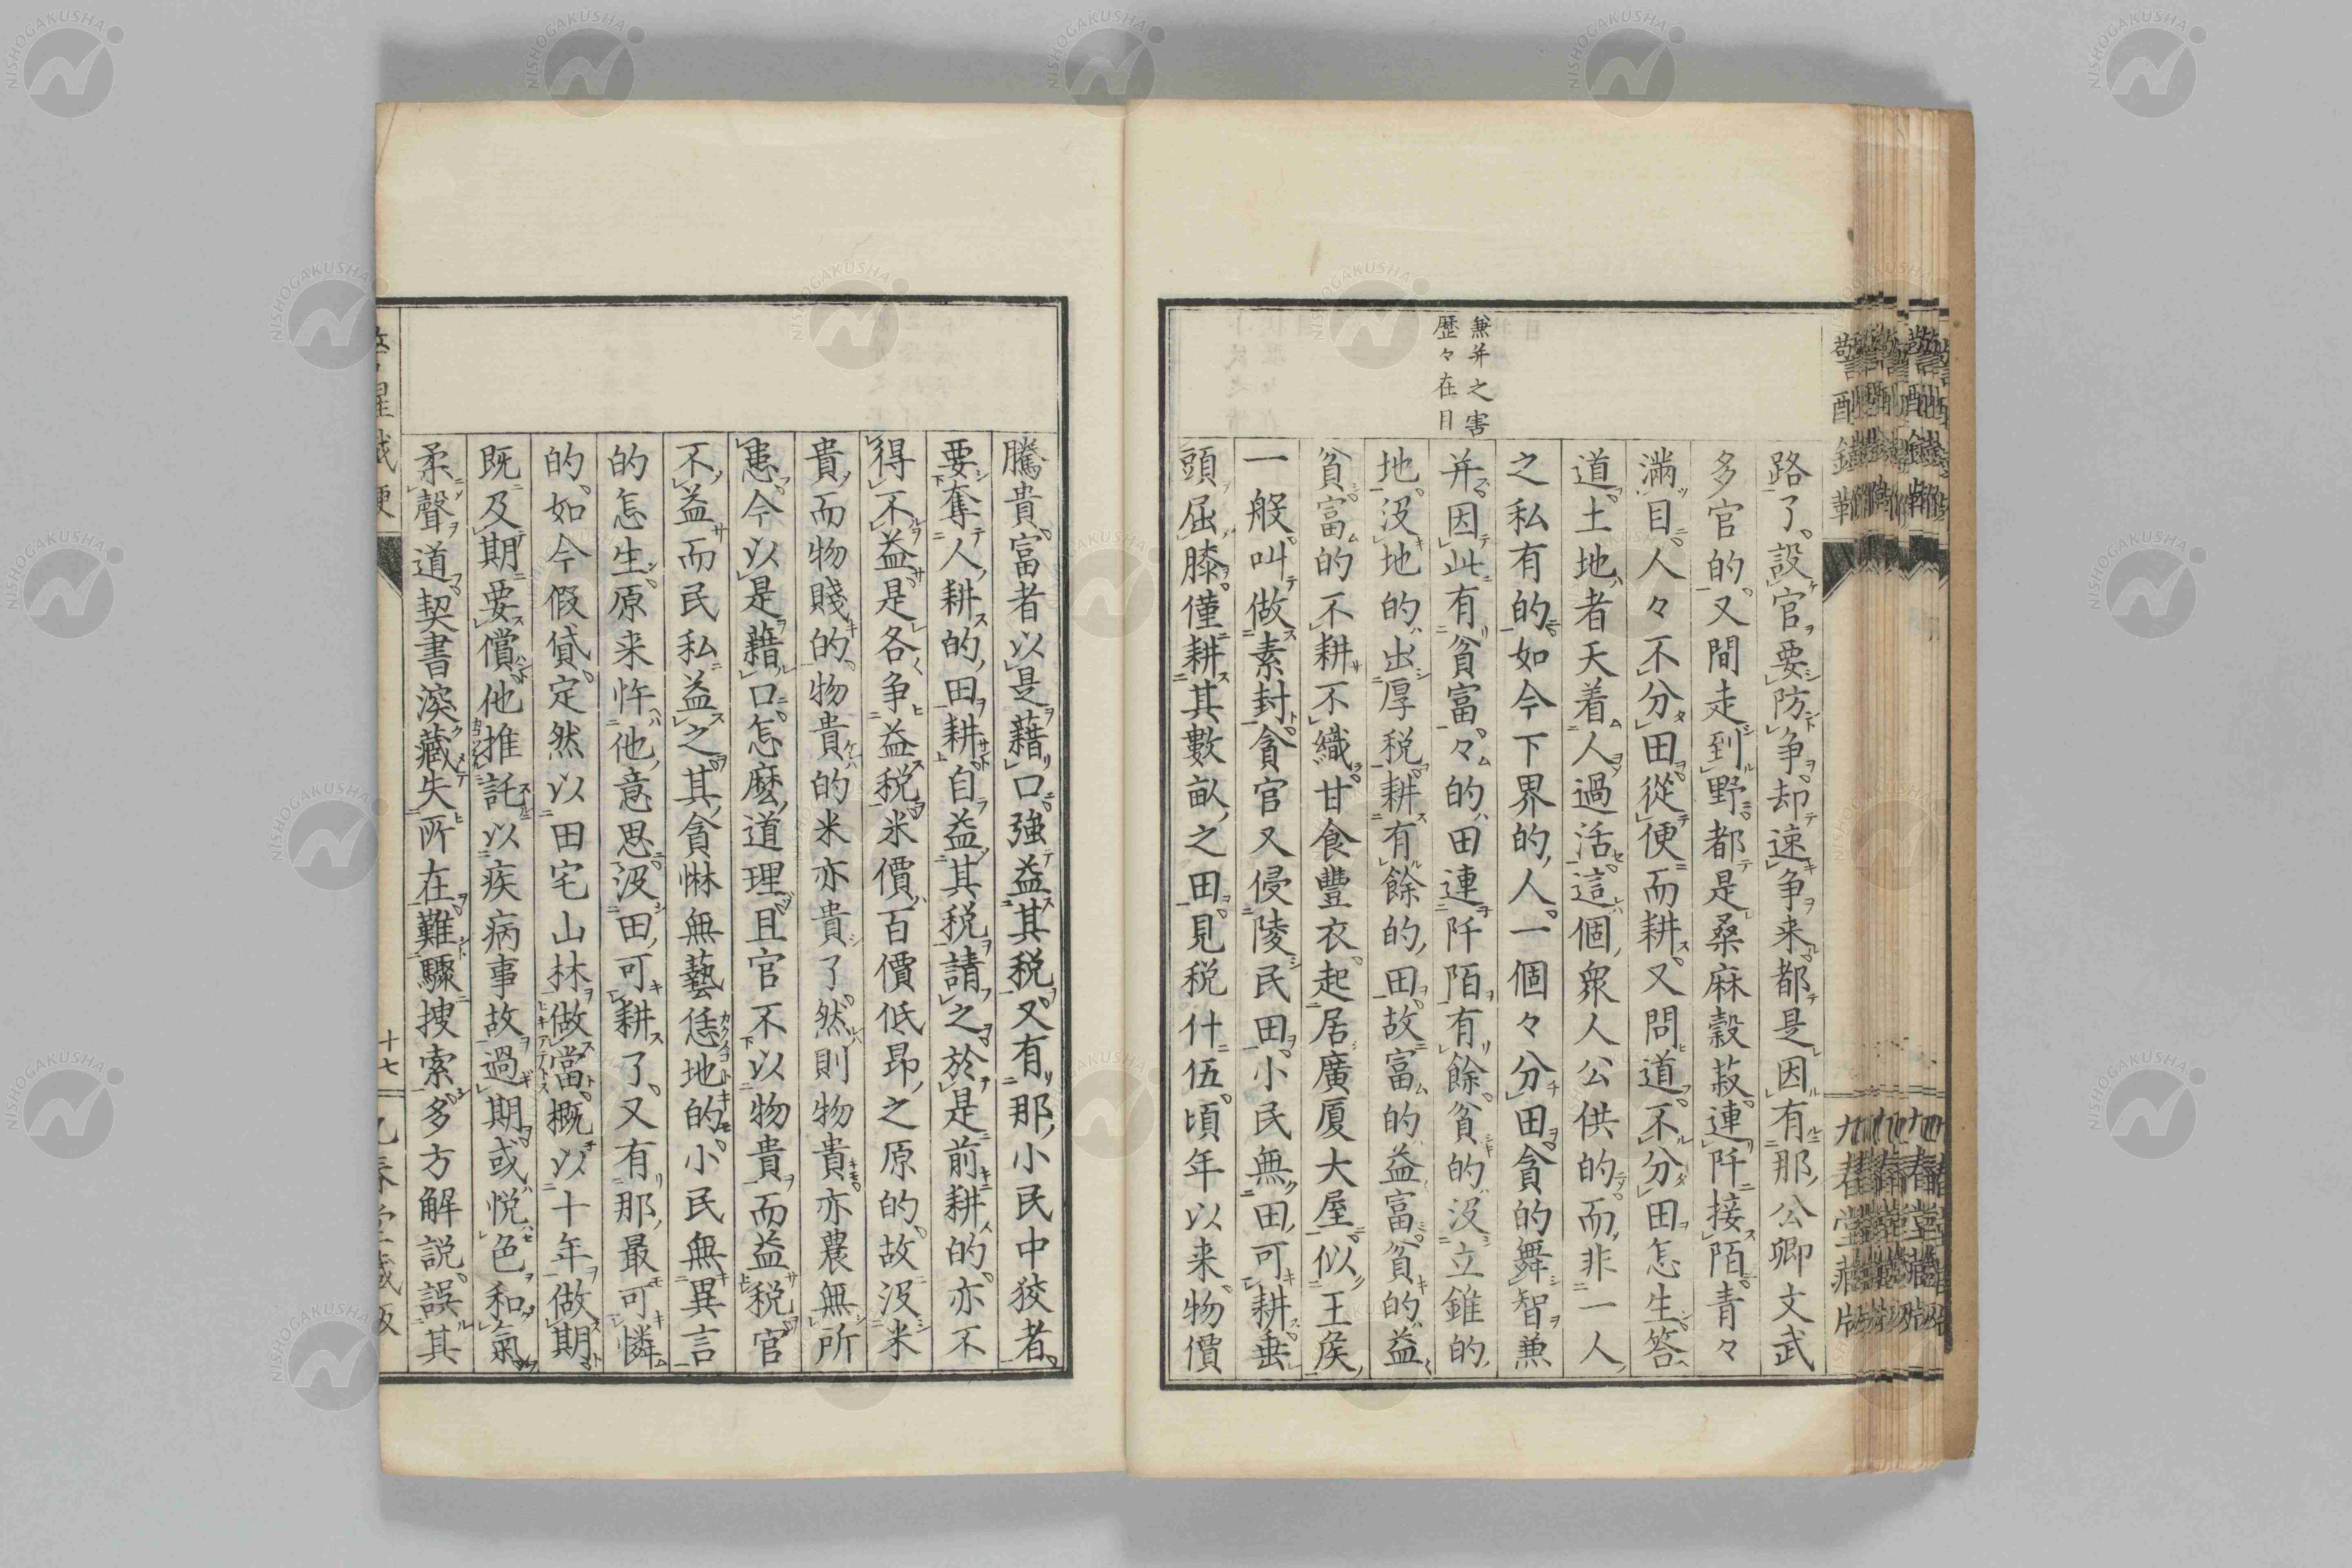 兼并之害
歴々在目
路了。設官要防争。却速争来。都是因有那公卿文武
多官的。又間走到野。都是桑麻穀菽。連阡接陌。青々
満目。人々不分田。從便而耕。又問道。不分田怎生。答
道。土地者天着人過活。這個衆人公供的。而非一人
之私有的。如今下界的人。一個々分田。貪的舞智兼
并。因此有貧富。々的田連阡陌有餘。貧的没立錐的
地。没地的出厚税。耕有餘的田。故富的益富。貧的益
貧。富的不耕不織。甘食豐衣。起居廣厦大屋。似王侯
一般。叫做素封。貪官又侵陵民田。小民無田可耕。垂
頭屈膝。僅耕其數畝之田。見税什伍。頃年以来。物價
騰貴。富者以是藉口。強益其税。又有那小民中狡者。
要奪人耕的田耕。自益其税請之。於是前耕的亦不
得不益。是各争益税。米價百價低昂之原的。故没米
貴。而物賤的。物貴的米亦貴了。然則物貴亦農無所
患。今以是藉口。怎麼道理。且官不以物貴而益税。官
不益而民私益之。其貪惏無藝恁地的。小民無異言
的怎生。原来忤他意思。没田可耕了。又有那最可憐
的。如今假貸。定然以田宅山林做當。概以十年做期。
既及期要償。他推託以疾病事故過期。或悦色和氣
柔聲道。契書深藏失所在。難驟捜索。多方解説。誤其
十七